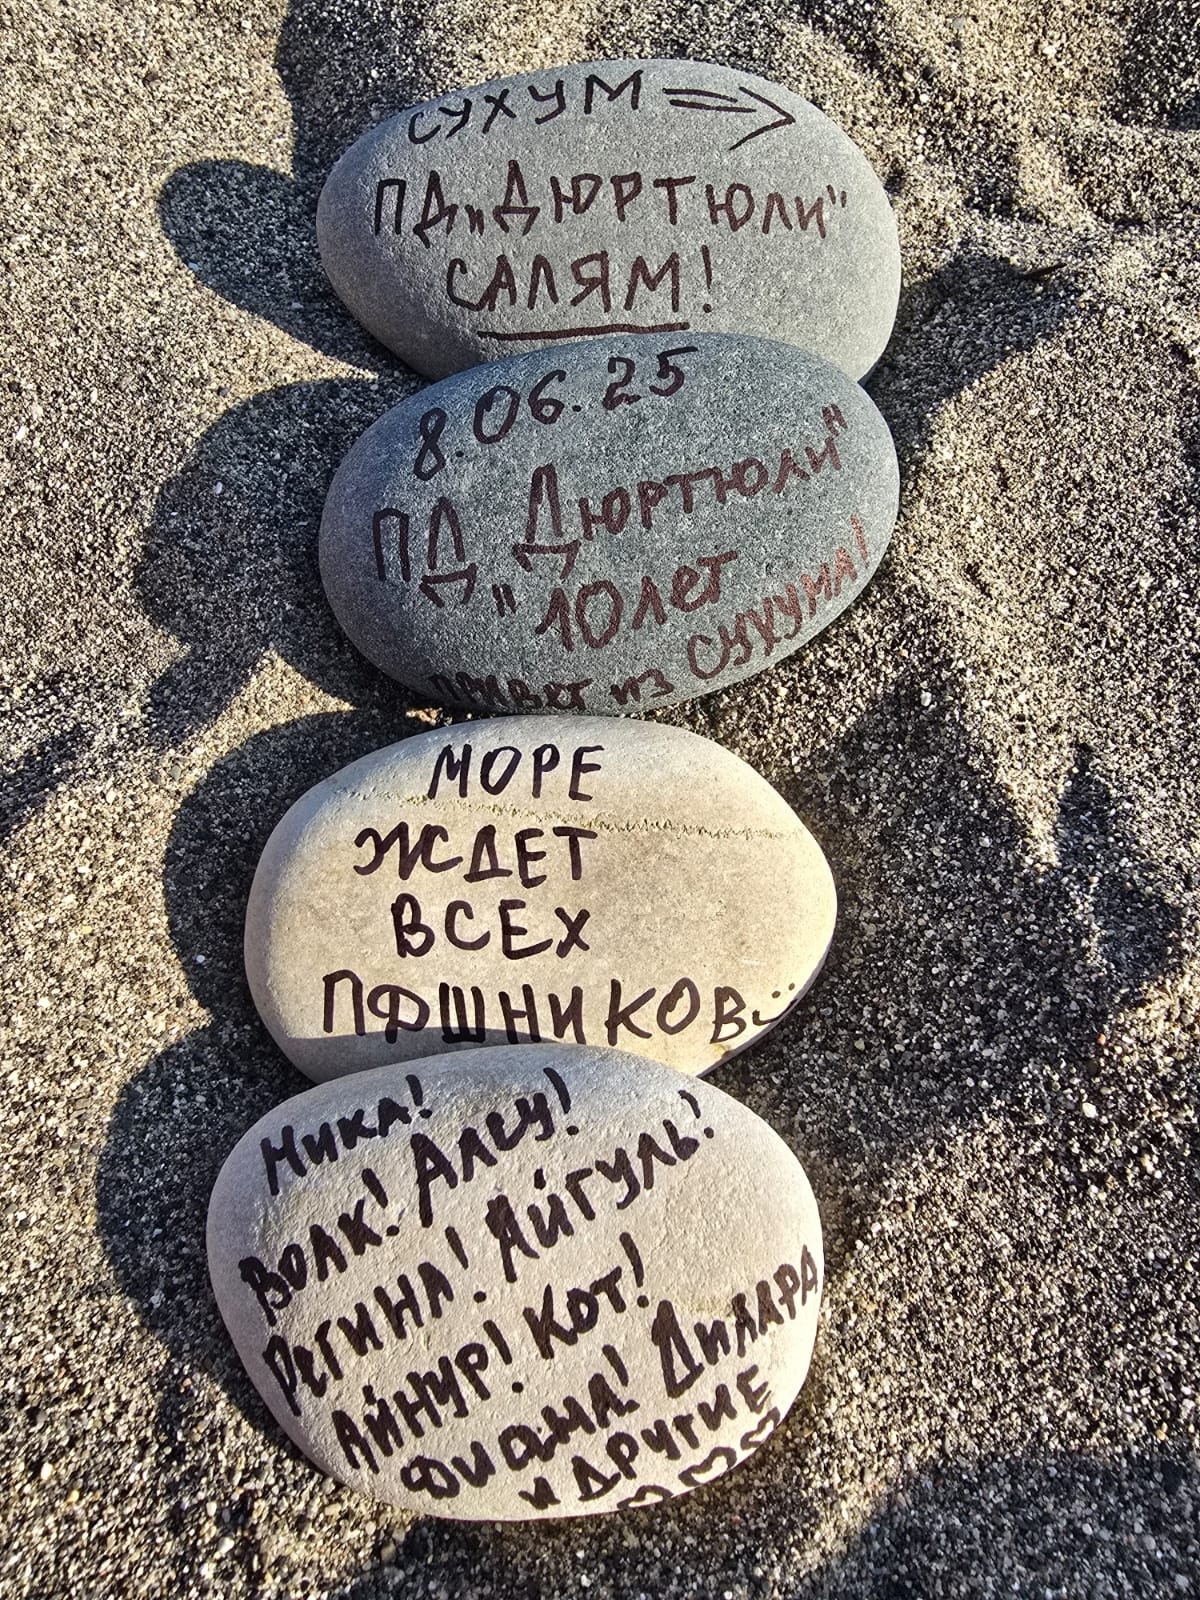 СУХУМ ⇒
ПД „ДЮРТЮЛИ"
САЛЯМ!
8 06.25
ПД Дюртюли"
„ 10 лет
привет из Сухума!
МОРЕ
ЖДЕТ
ВСЕХ
ПФШНИКОВ
Ника!
Волк! Алсу!
Регина! Айгуль!
Айнур! Кот!
Дилара
и другие